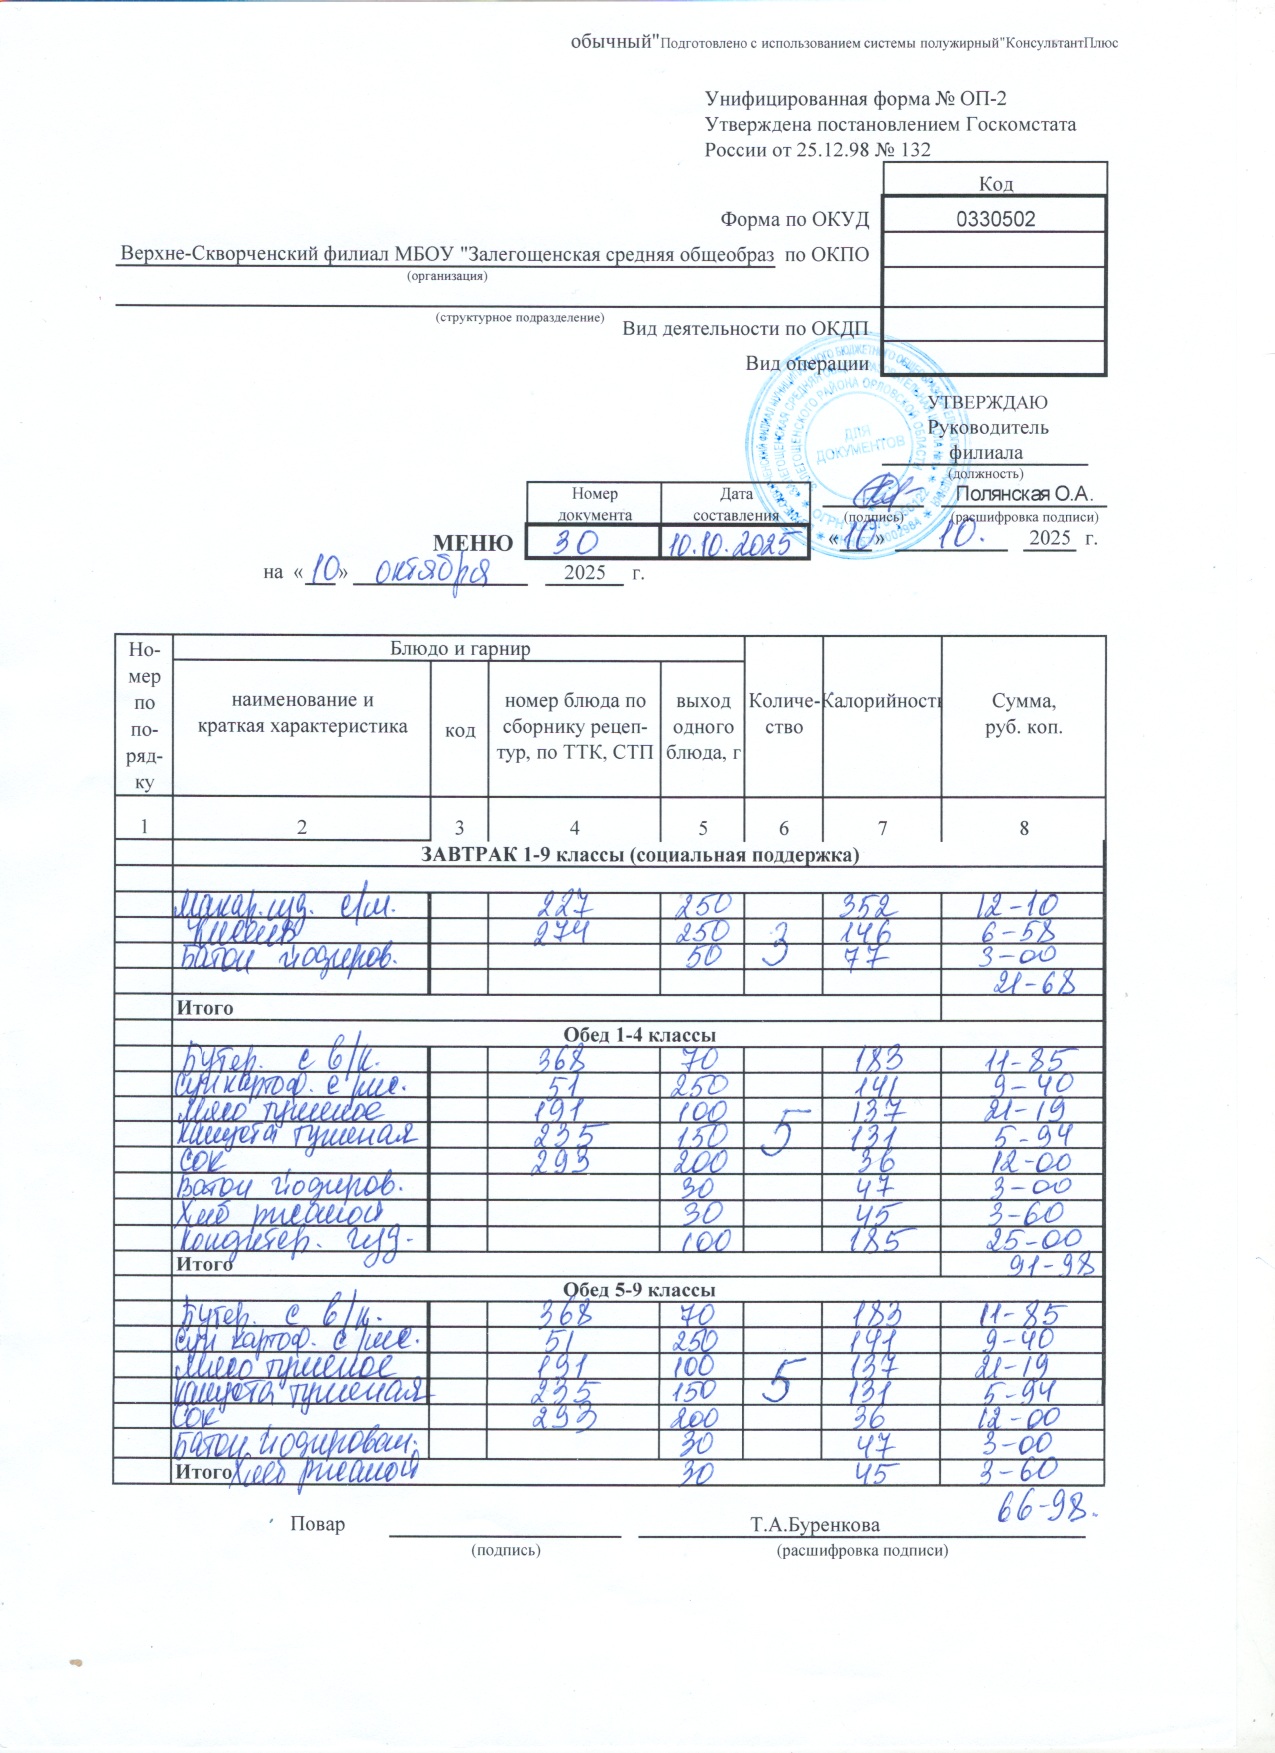 обычный"Подготовлено с использованием системы полужирный"КонсультантПлюс
Унифицированная форма № ОП-2
Утверждена постановлением Госкомстата
России от 25.12.98 № 132
Код
Форма по ОКУД 0330502
Верхне-Скворченский филиал МБОУ "Залегощенская средняя общеобраз по ОКПО
(организация)
(структурное подразделение)
Вид деятельности по ОКДП
Вид операции
УТВЕРЖДАЮ
Руководитель
филиала
(должность)
ДЛЯ
ДОКУМЕНТОВ
Полянская О.А.
(подпись) (расшифровка подписи)
Номер документа Дата составления
МЕНЮ 30 10.10.2025 «10» 10. 2025 г.
на «10» октября 2025 г.
Но-мер по по-ряд-ку
Блюдо и гарнир
наименование и краткая характеристика
код
номер блюда по сборнику рецеп-тур, по ТТК, СТП
выход одного блюда, г
Количе-ство
Калорийность
Сумма, руб. коп.
1 2 3 4 5 6 7 8
ЗАВТРАК 1-9 классы (социальная поддержка)
Макар.изд. с/м. 227 250 352 12-10
274 250 3 146 6-58
Батон йодиров. 50 77 3-00
21-68
Итого
Обед 1-4 классы
Бутер. с в/к. 368 70 183 11-85
Суп картоф. с рис. 51 250 141 9-40
Мясо тушеное 191 100 137 21-19
Капуста тушеная 235 150 5 131 5-94
Сок 293 200 36 12-00
Батон йодиров. 30 47 3-00
Хлеб ржаной 30 45 3-60
Кондитер. изд. 100 185 25-00
Итого 91-98
Обед 5-9 классы
Бутер. с в/к. 368 70 183 11-85
Суп картоф. с рис. 51 250 141 9-40
Мясо тушеное 191 100 137 21-19
Капуста тушеная 235 150 5 131 5-94
Сок 293 200 36 12-00
Батон йодирован. 30 47 3-00
Итого Хлеб ржаной 30 45 3-60
66-98.
Повар Т.А.Буренкова
(подпись) (расшифровка подписи)